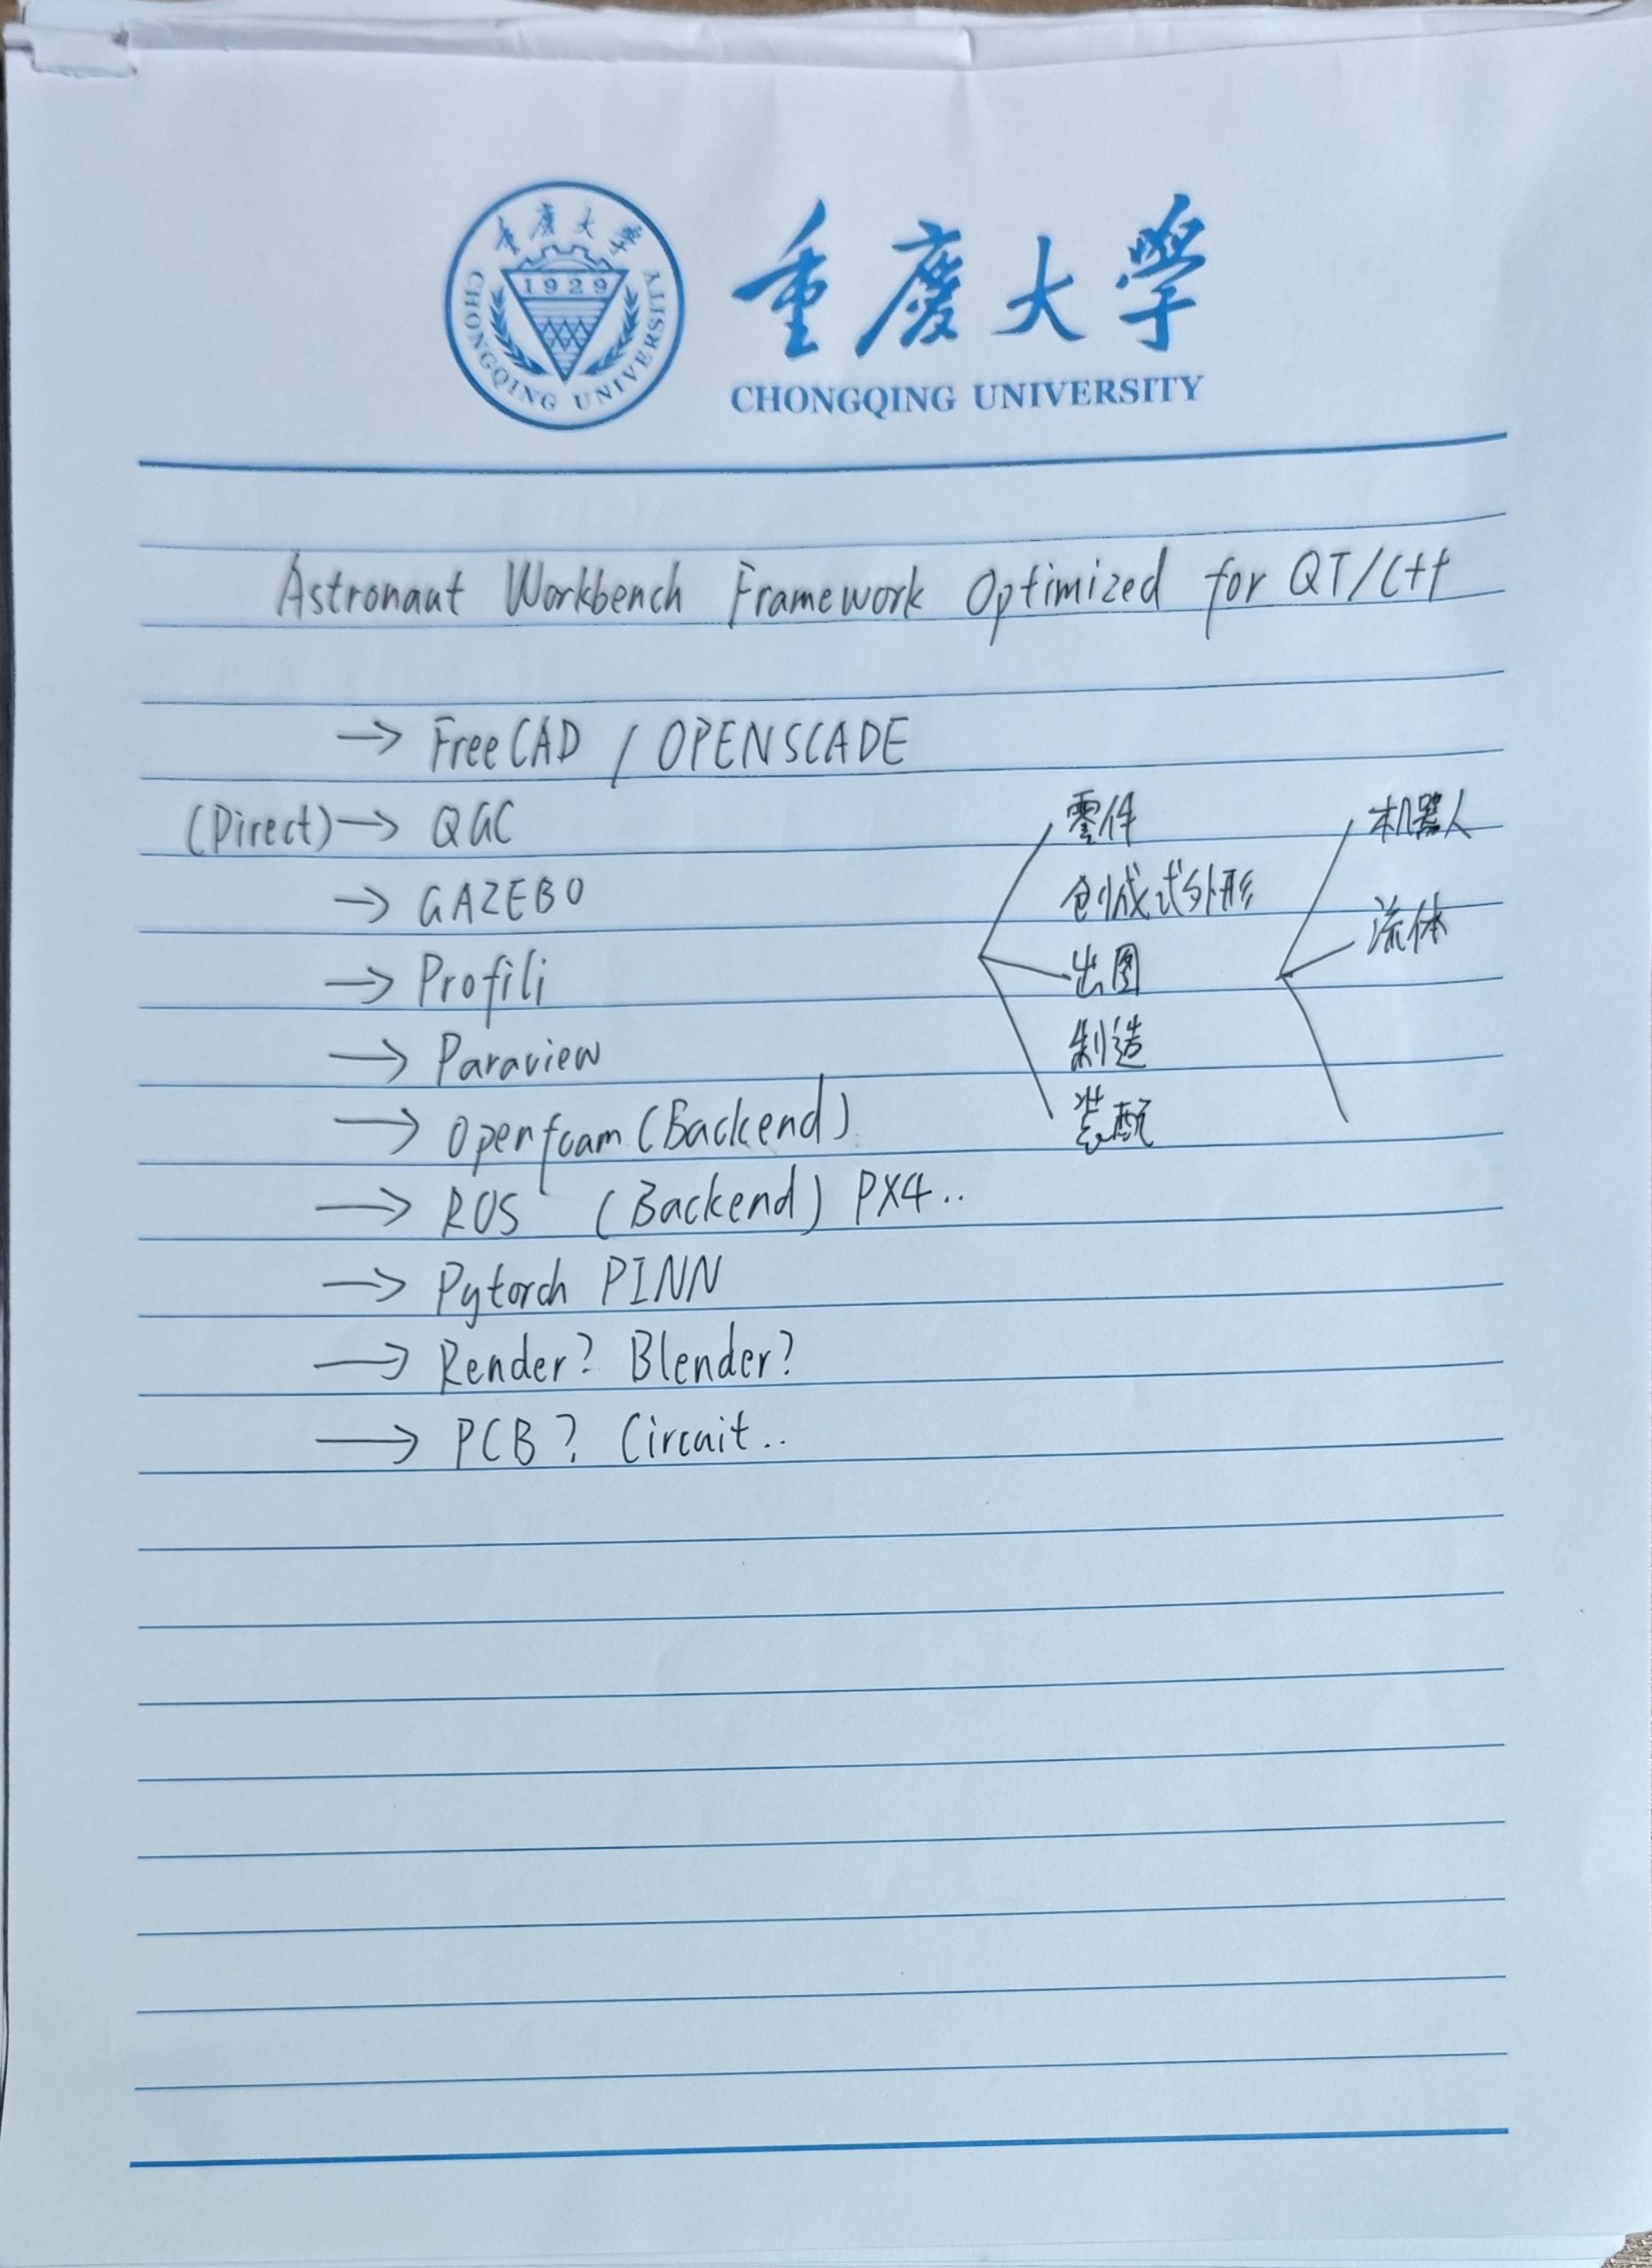 重慶大學
1929
CHONGQING UNIVERSITY
重慶大學
CHONGQING UNIVERSITY
Astronaut Workbench Framework Optimized for QT/C++
→ FreeCAD / OPENSCADE
(Direct) → QGC
→ GAZEBO
→ Profili
→ Paraview
→ Openfoam (Backend)
→ ROS (Backend) PX4..
→ Pytorch PINN
→ Render? Blender?
→ PCB? Circuit..
零件
创成式外形
出图
制造
装配
机器人
流体